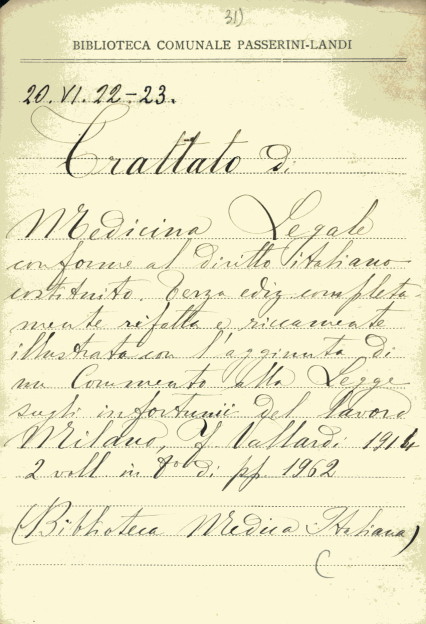 31)
BIBLIOTECA COMUNALE PASSERINI-LANDI
20.VI.22-23.
Trattato di
Medicina Legale
conforme al diritto italiano
costituito. Terza ediz completa-
mente rifatta e riccamente
illustrata con l'aggiunta di
un Commento alla Legge
sugli infortunii del lavoro
Milano, F Vallardi 1914
2 voll in 8° di pp 1962
(Biblioteca Medica Italiana)